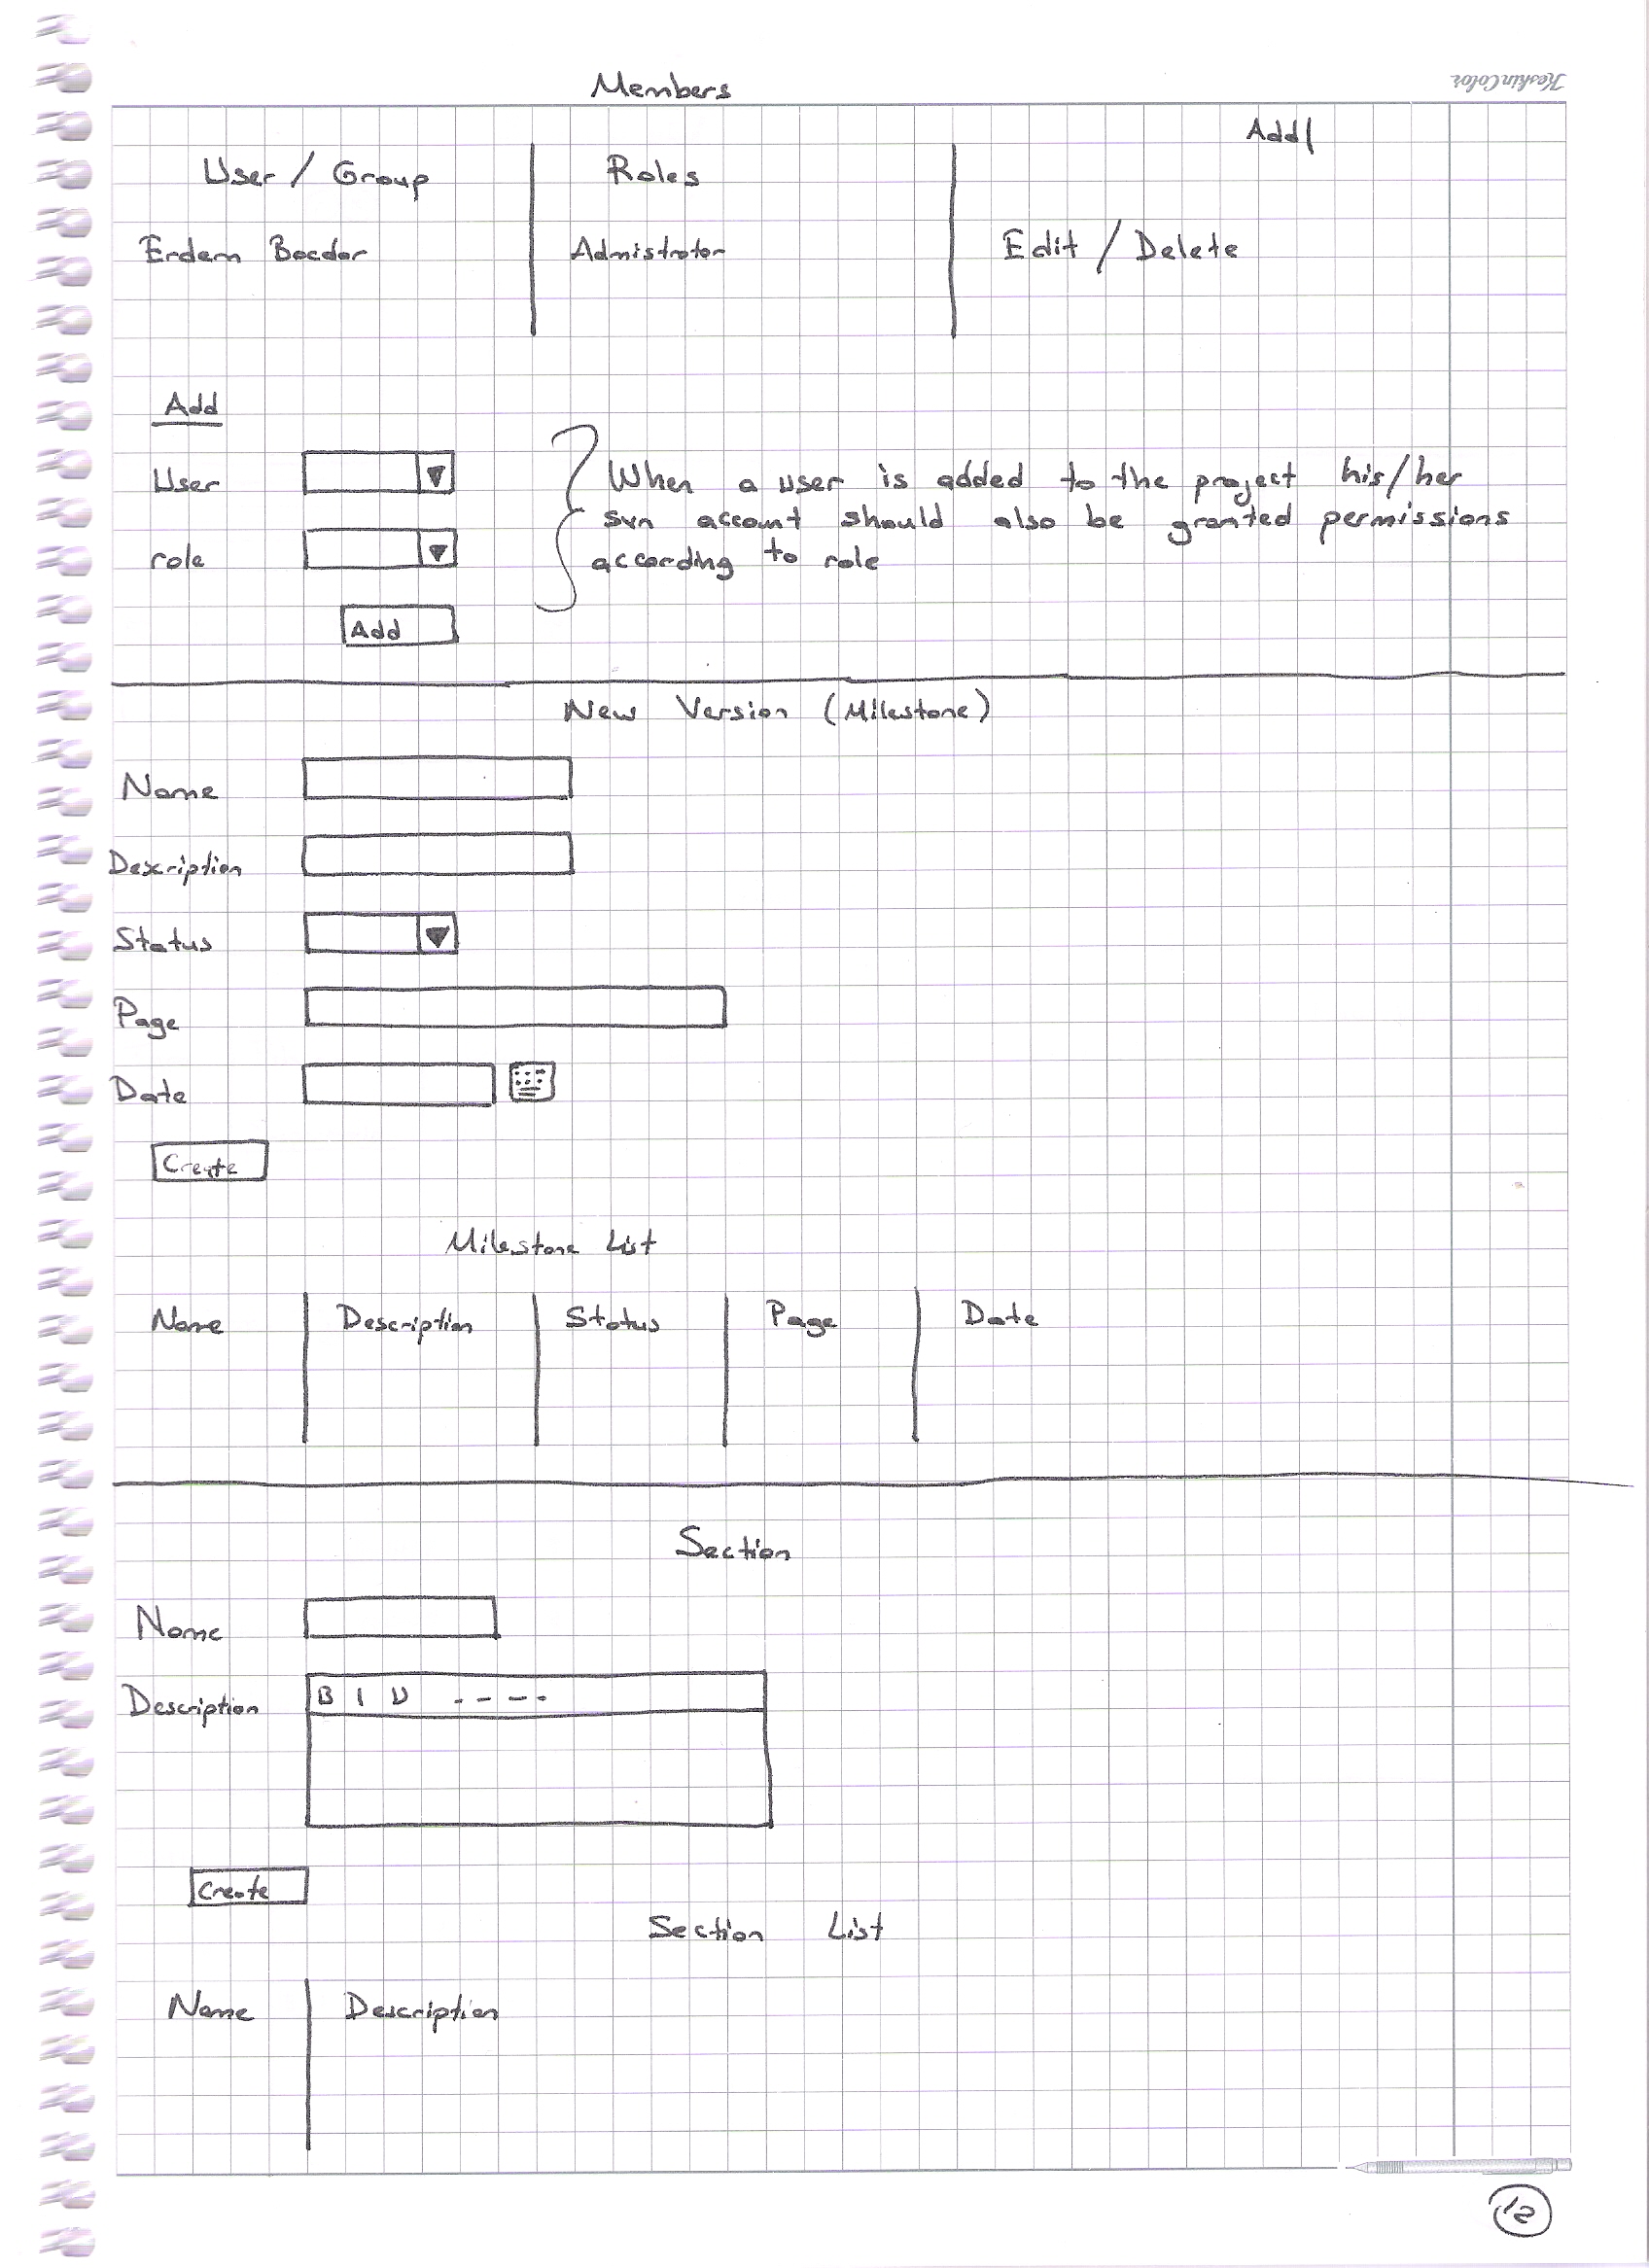 KeskinColor
Members
Add|
User / Group Roles
Erdem Bocdor Admistrator Edit / Delete
Add
User
role
Add
When a user is added to the project his/her
svn accomt should also be granted permissions
according to role
New Version (Milestone)
Name
Description
Status
Page
Date
Create
Milestone List
Name Description Status Page Date
Section
Name
Description
B I U ----
Create
Section List
Name Description
12